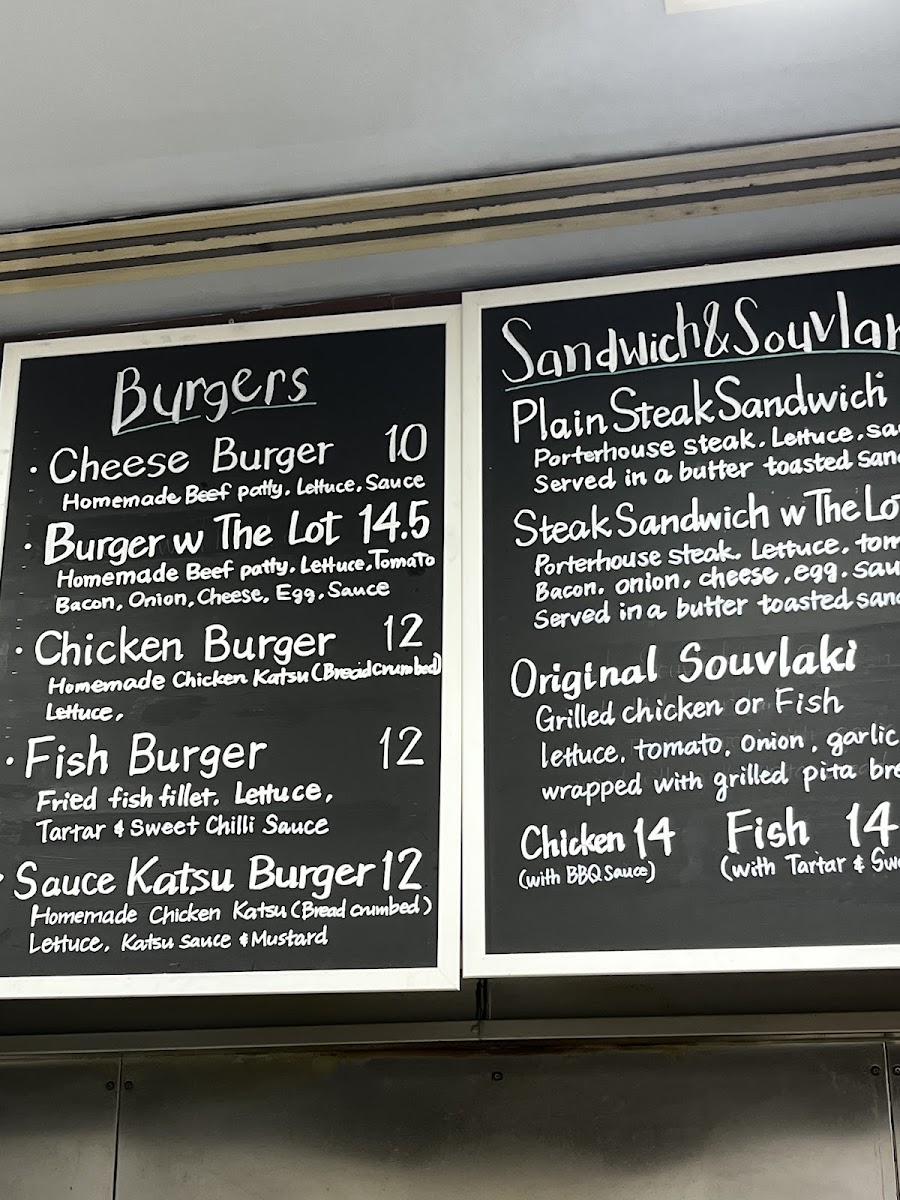 Burgers
· Cheese Burger 10
Homemade Beef patty. Lettuce. Sauce
· Burger w The Lot 14.5
Homemade Beef patty. Lettuce. Tomato
Bacon, Onion, Cheese, Egg, Sauce
· Chicken Burger 12
Homemade Chicken Katsu (Bread crumbed)
Lettuce,
· Fish Burger 12
Fried fish fillet. Lettuce,
Tartar & Sweet Chilli Sauce
· Sauce Katsu Burger 12
Homemade Chicken Katsu (Bread crumbed)
Lettuce, Katsu sauce & Mustard
Sandwich & Souvla
Plain Steak Sandwich
Porterhouse steak. Lettuce, sa
Served in a butter toasted san
Steak Sandwich w The Lo
Porterhouse steak. Lettuce, tom
Bacon. onion, cheese, egg. sau
Served in a butter toasted san
Original Souvlaki
Grilled chicken or Fish
lettuce, tomato, onion, garlic
wrapped with grilled pita bre
Chicken 14 Fish 14
(with BBQ Sauce) (with Tartar & Sw